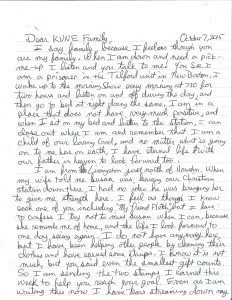 October 7, 2015
Dear KVNE Family,
I say family, because I feel as though you
are my family. When I am down and need a pick-
me-up I listen and you talk to me! You see I
am a prisoner in the Telford unit in New Boston. I
wake up to the morning show every morning at 7:30 for
two hours and listen on and off during the day, and
then go to bed at night doing the same. I am in a
place that does not have very much positive, and
when I sit on my bed and listen to the station, I can
close out where I am and remember that I am a
child of our loving God, and no matter what is going
on to me here on earth, I have eternal life with
our father in heaven to look forward to.
I am from Livingston, just north of Houston. When
my wife told me there was
station down there, I had no idea he was bringing her
to give me strength here. I feel as though I know
each one of you including my friend
to confess I try not to miss when I can, because
she reminds me of home, and the life I look forward to
one day seeing again. I do not have any money
but I have been helping other people by cleaning their
clothes and have earned some stamps. I know it is not
much, but you said even the smallest gift counts.
So I am sending the two stamps I earned this
week to help you reach your goal. Even as I am
writing this now I have tears streaming down my